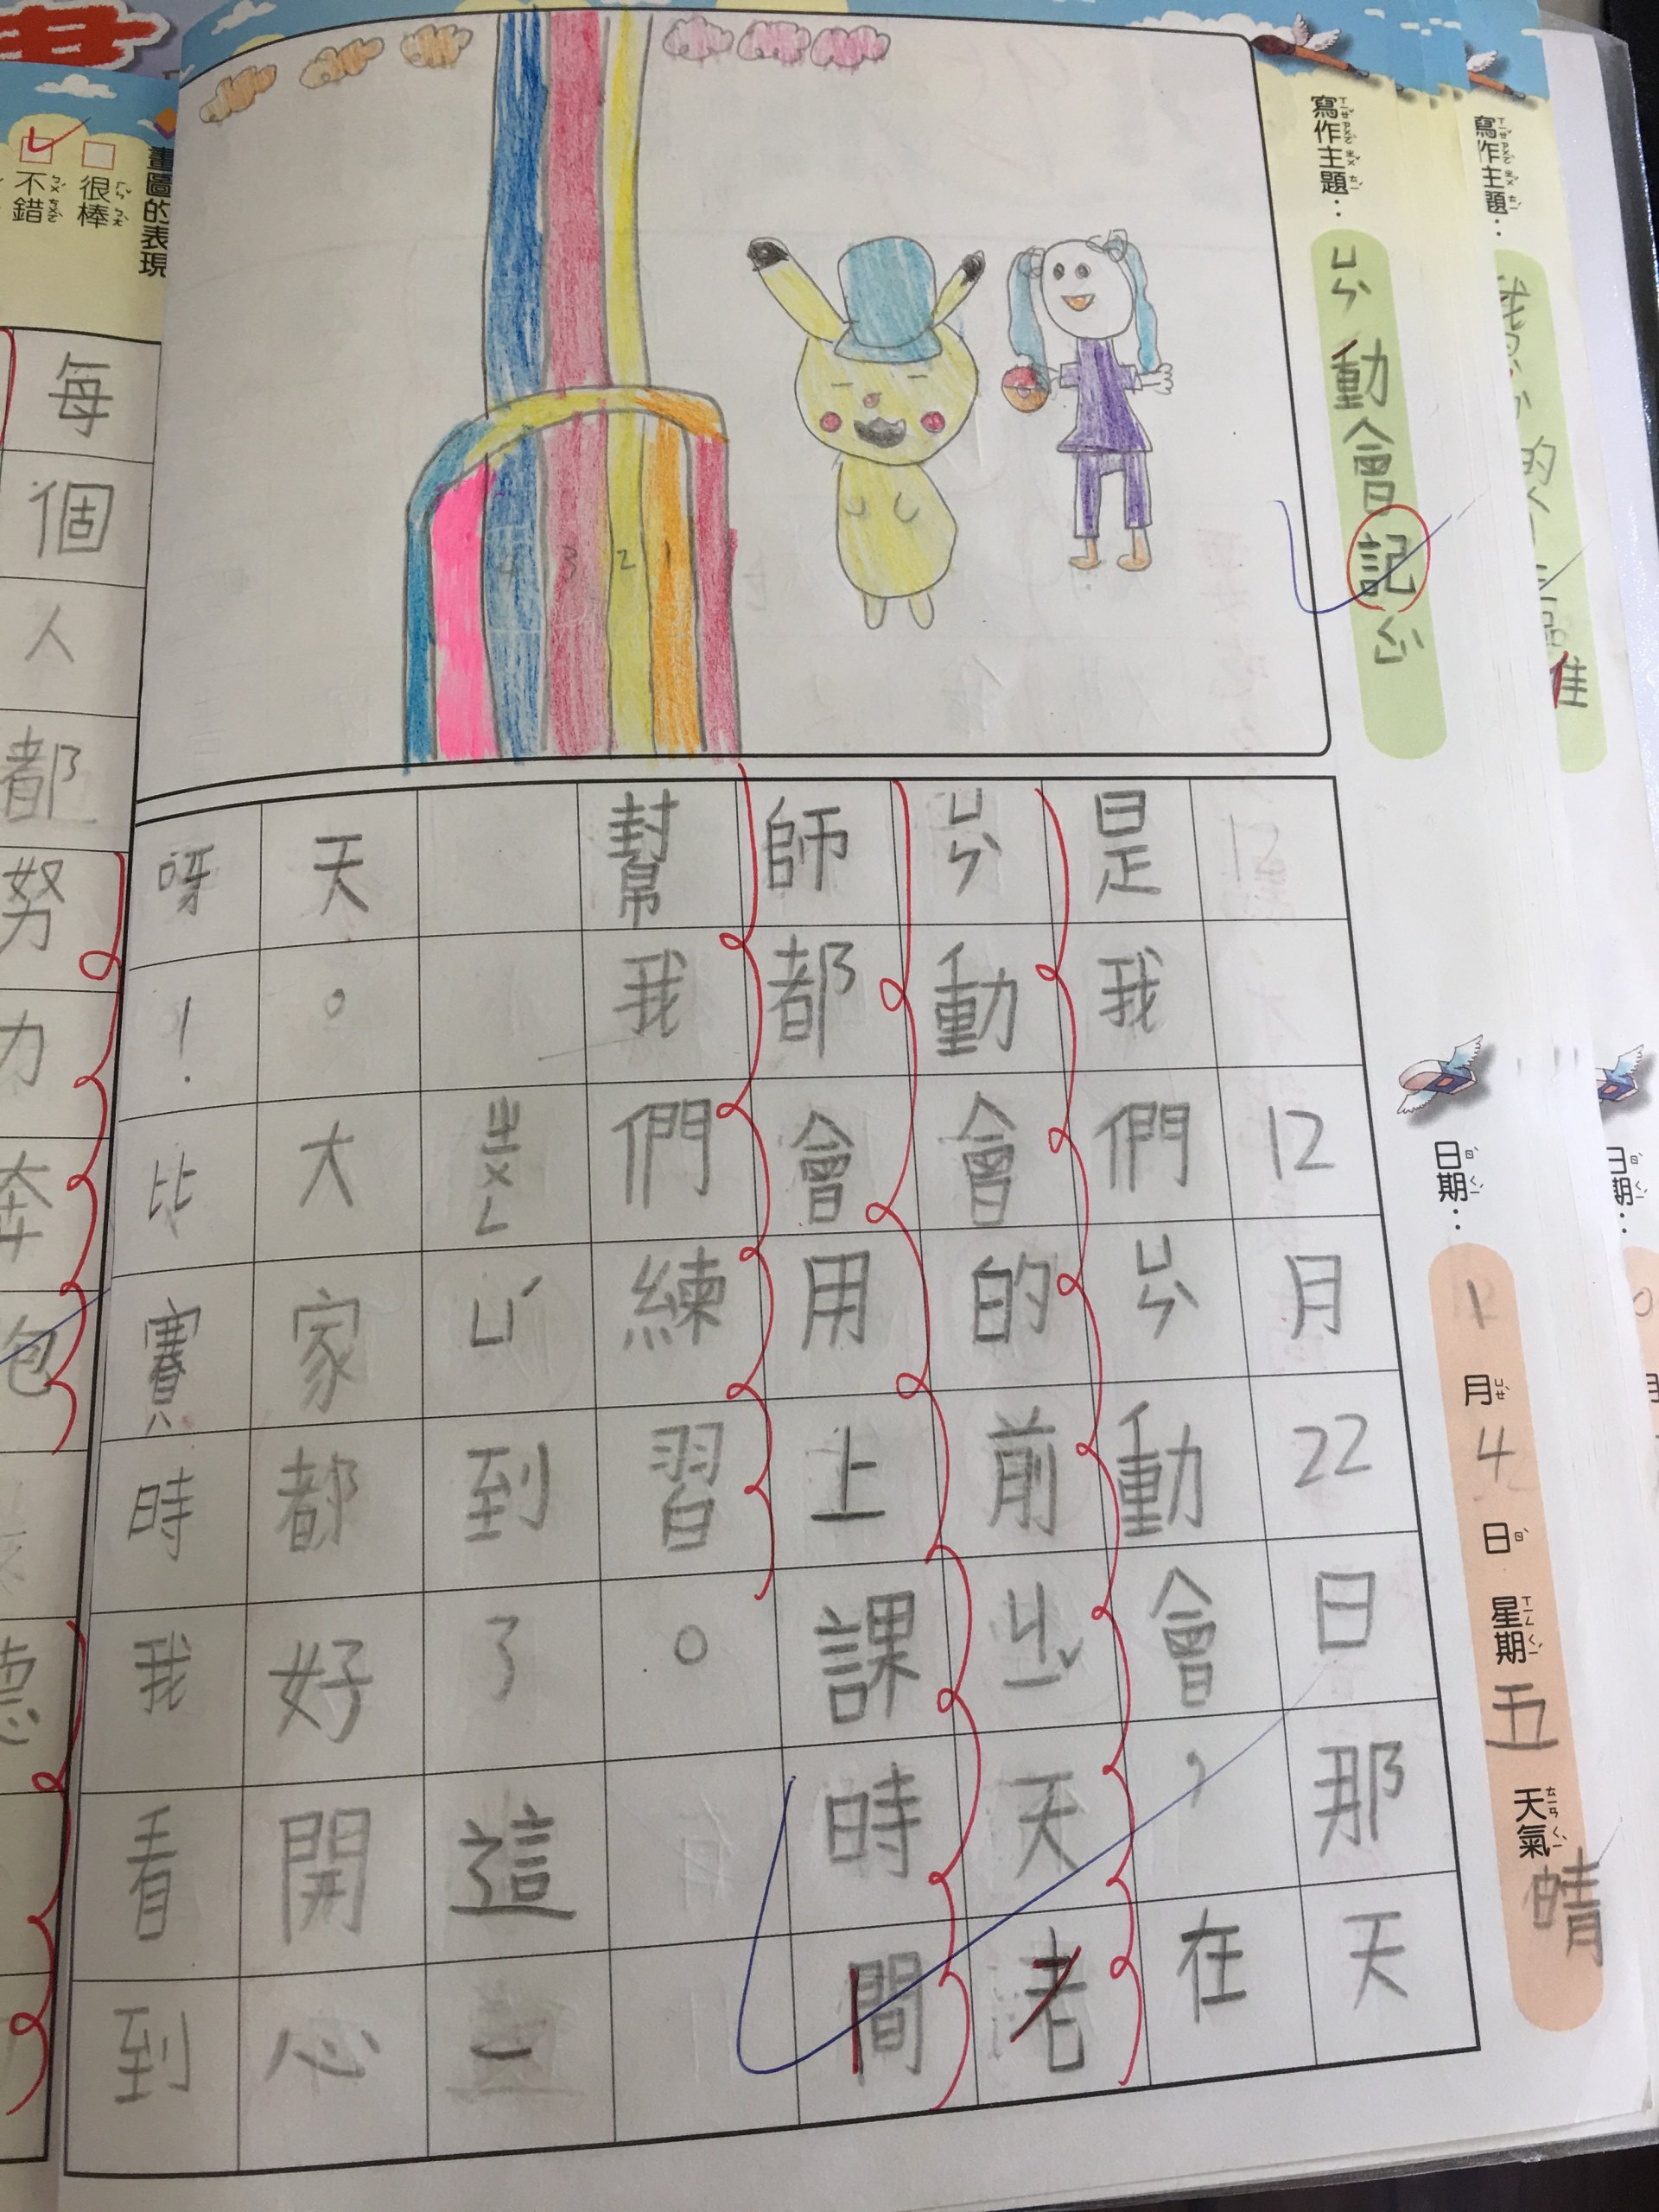 寫作主題：
日期：
寫作主題：ㄩㄣ動會記
日期：1月4日 星期五 天氣晴
4 3 2
12月22日那天
是我們ㄩㄣ動會，在
ㄩㄣ動會的前ㄐㄧˇ天老
師都會用上課時間
幫我們練習。
ㄓㄨㄥㄩˊ到了這一
天。大家都好開心
呀！比賽時我看到
畫圖的表現
很棒
不錯
每個人都努力奔